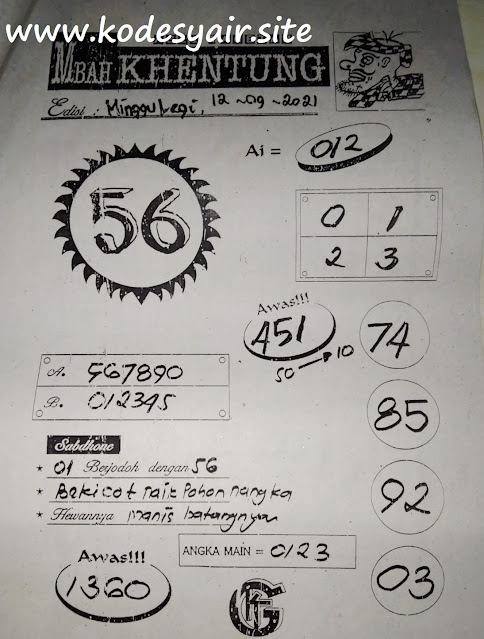 www.kodesyair.site
MBAH KHENTUNG
Edisi : Minggu Legi, 12-09-2021
Ai = 012
56
0 1
2 3
Awas!!!
451
50 → 10
74
A. 567890
B. 012345
85
Sabdhone
* 01 Berjodoh dengan 56
* Bekicot naik Pohon nangka
* Hewannya manis batangnya
92
ANGKA MAIN = 0123
Awas!!!
1360
03